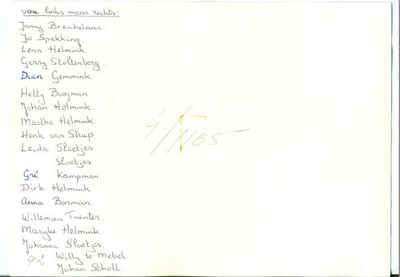 van links naar rechts:
Janny Breukelaar.
Jo Spekking
Lena Helmink
Gerry Stoltenborg.
Dien Gemmink.
Hetty Boogman
Johan Helmink.
Martha Helmink.
Henk van Shup
Leida Sloetjes
Sloetjes
Gré Kampman.
Dirk Helmink
Anna Bosman.
Willemien Tuenter.
Marijke Helmink
Johanna Sloetjes.
Willy te Mebel
Johan Scholl.
92